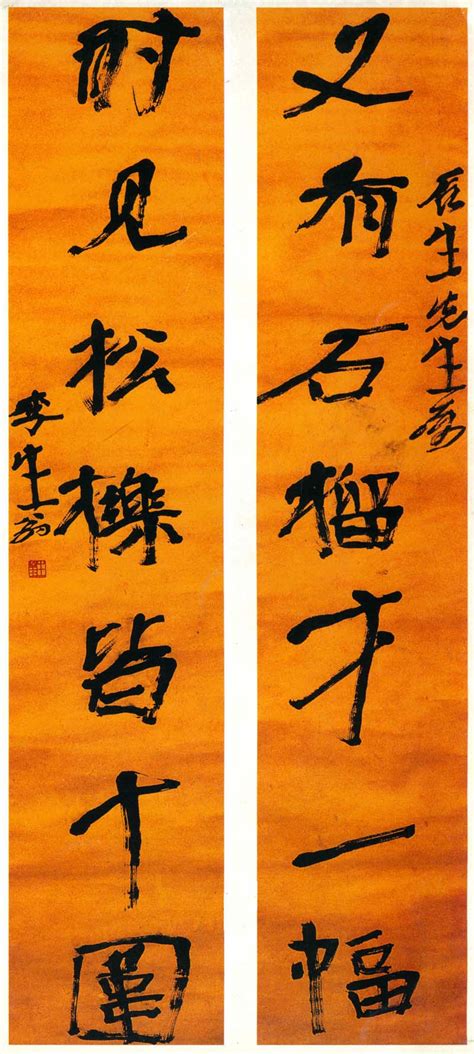 又有石榴才一幅
辰生先生属
时见松櫟皆十圍
李生翁